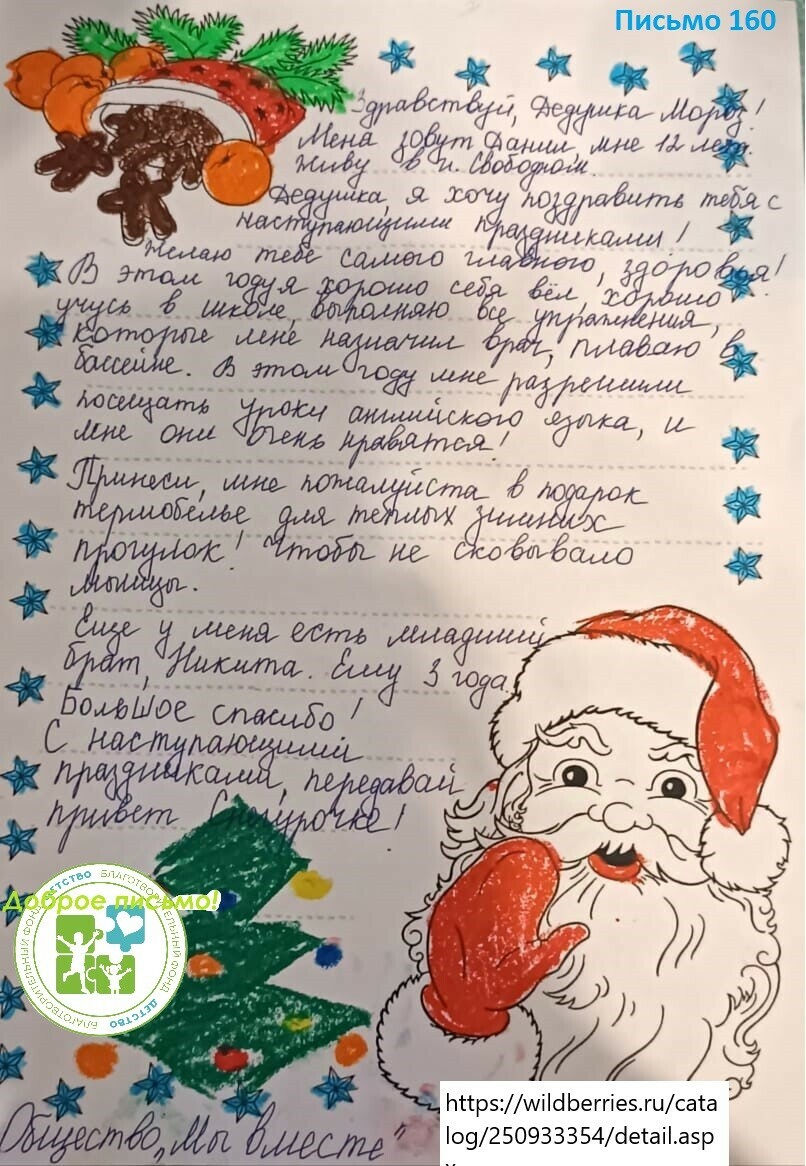 Письмо 160
Здравствуй, Дедушка Мороз!
Меня зовут Данил, мне 12 лет.
Живу в п. Свободном.
Дедушка, я хочу поздравить тебя с
наступающими праздниками!
Желаю тебе самого главного, здоровья!
В этом году я хорошо себя вёл, хорошо
учусь в школе, выполняю все упражнения,
которые мне назначил врач, плаваю в
бассейне. В этом году мне разрешили
посещать уроки английского языка, и
мне они очень нравятся!
Принеси, мне пожалуйста в подарок
термобелье для теплых зимних
прогулок! Чтобы не сковывало
мышцы.
Еще у меня есть младший
брат, Никита. Ему 3 года.
Большое спасибо!
С наступающими
праздниками, передавай
привет Снегурочке!
Доброе письмо!
БЛАГОТВОРИТЕЛЬНЫЙ ФОНД ДЕТСТВО
БЛАГОТВОРИТЕЛЬНЫЙ ФОНД ДЕТСТВО
https://wildberries.ru/cata
log/250933354/detail.asp
Общество „Мы вместе"